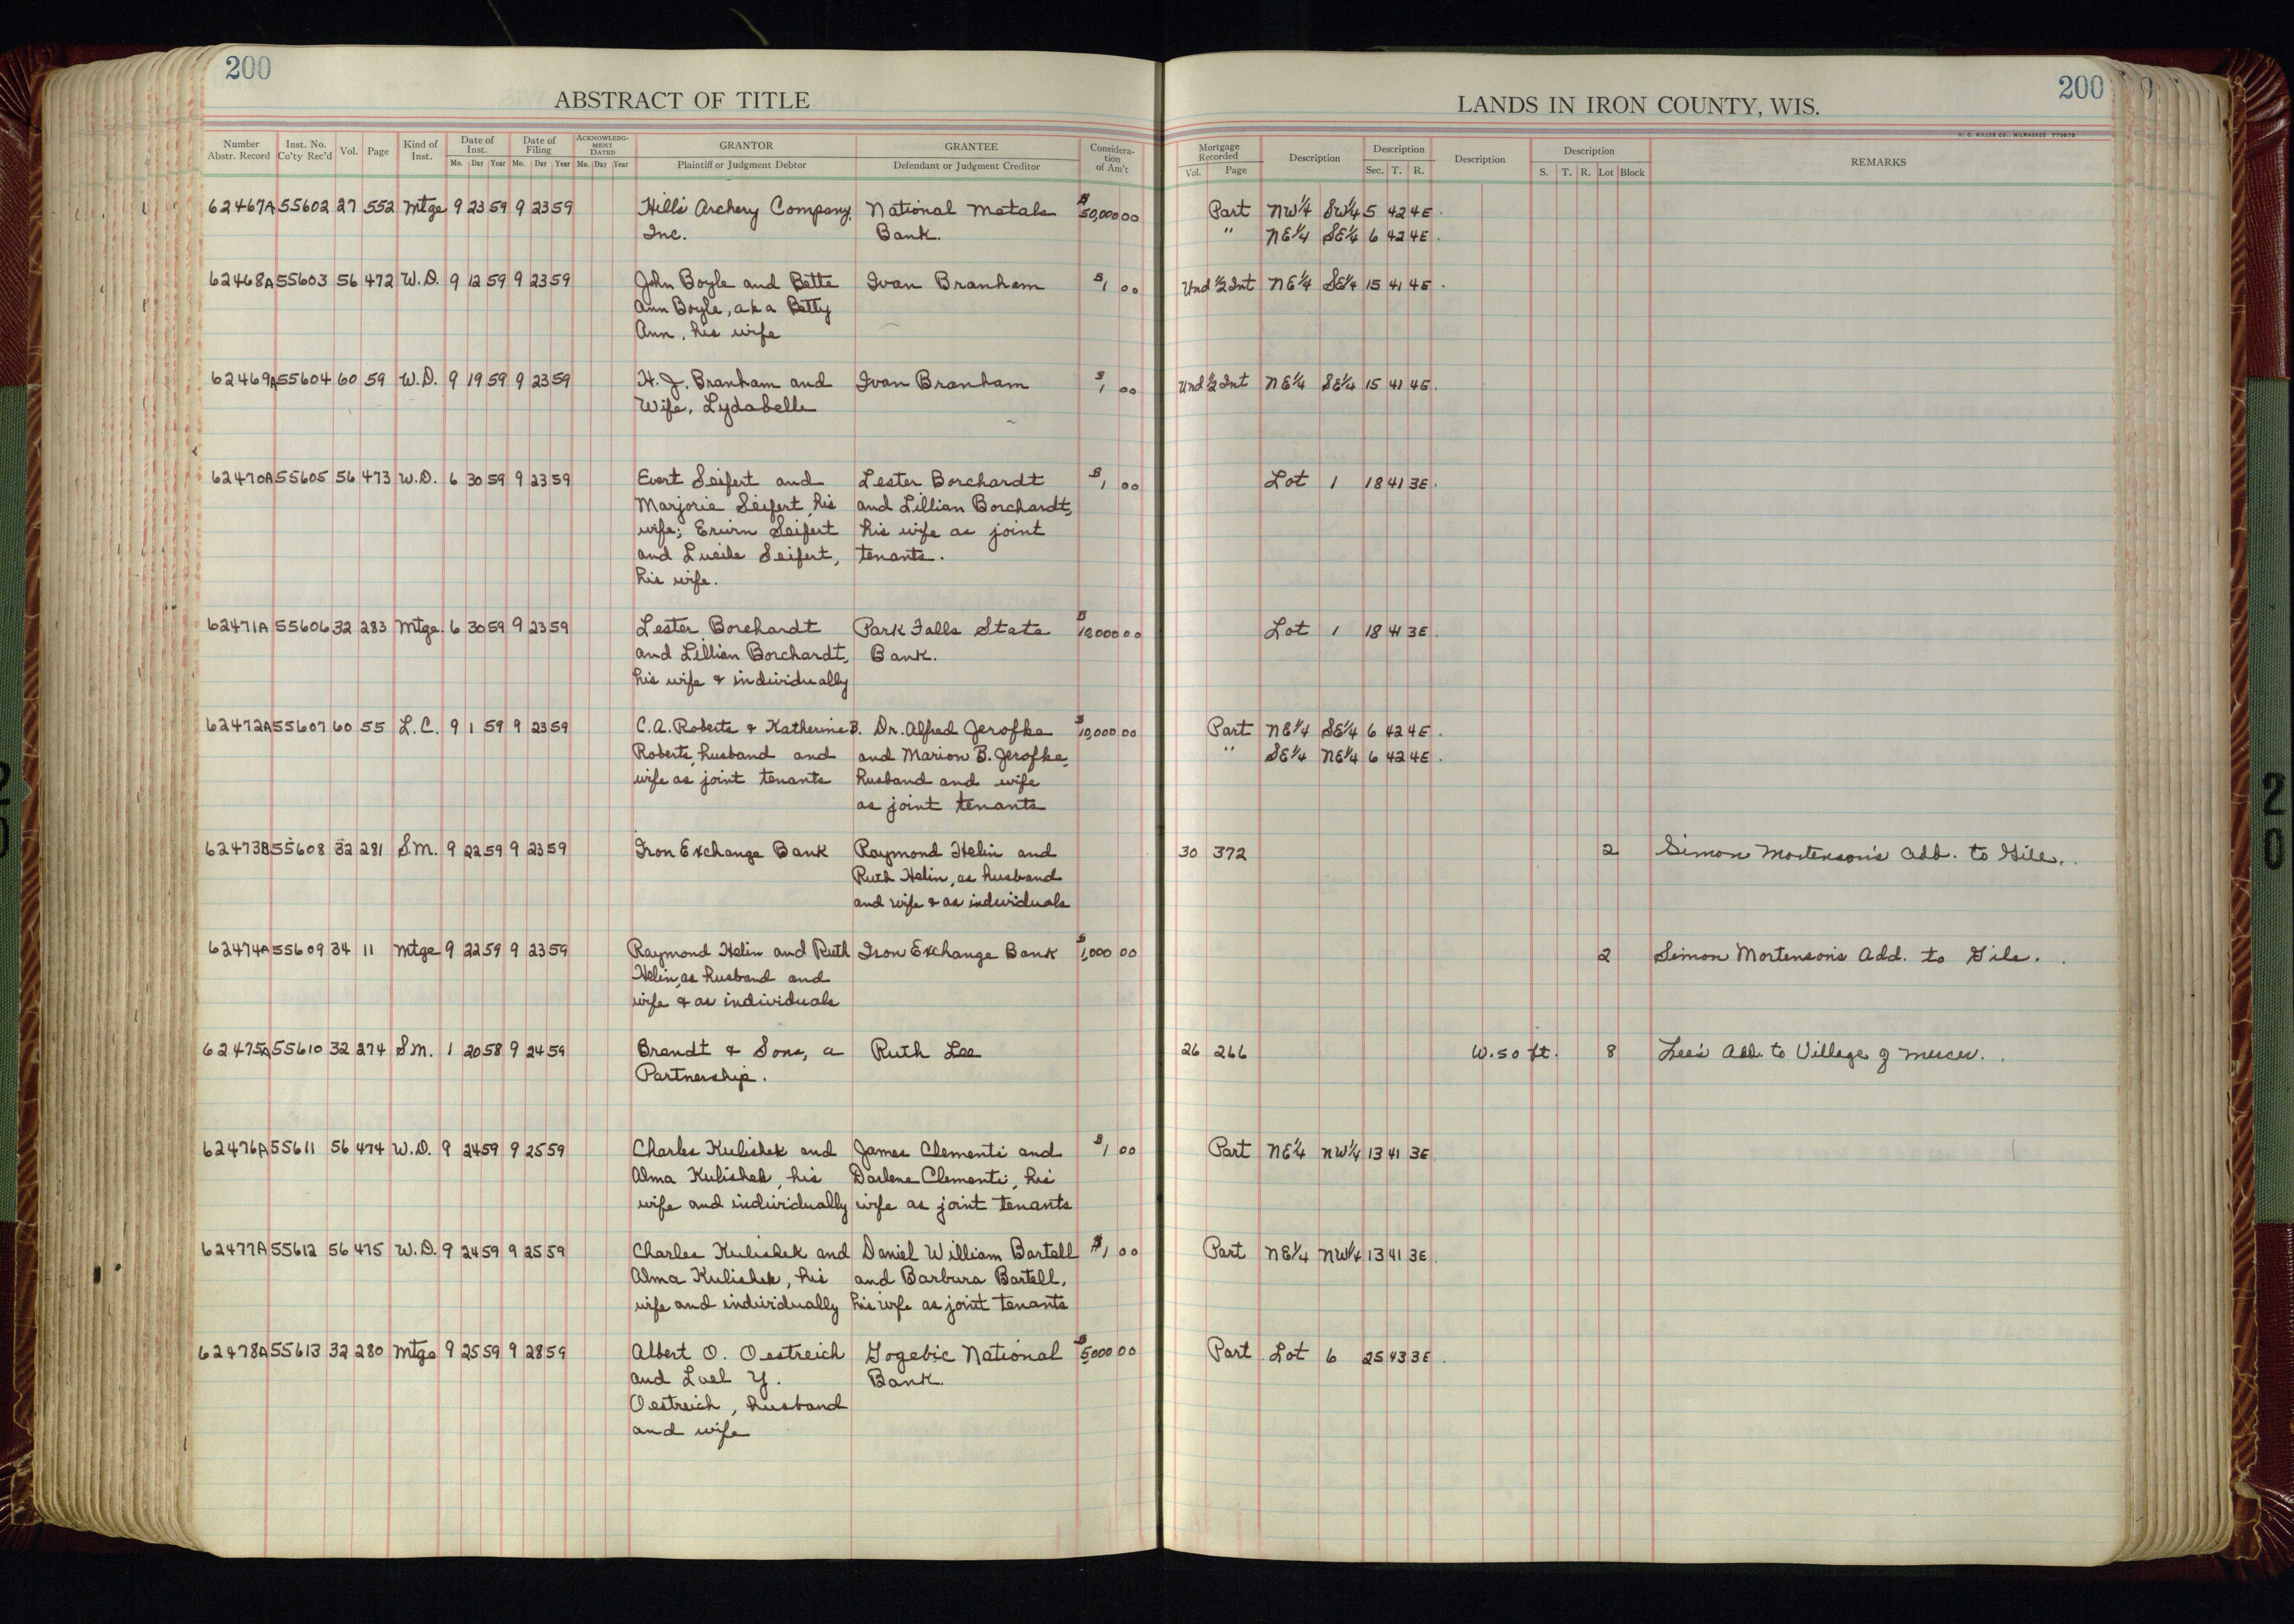 200
ABSTRACT OF TITLE
Number Abstr. Record Inst. No. Co'ty Rec'd Vol. Page Kind of Inst. Date of Inst. Mo. Day Year Date of Filing Mo. Day Year ACKNOWLEDGMENT DATED Mo. Day Year GRANTOR Plaintiff or Judgment Debtor GRANTEE Defendant or Judgment Creditor Consideration of Am't
62467A 55602 27 552 Mtge 9 23 59 9 23 59 Hill's Archery Company, National Metals $50,000 00
Inc. Bank.
62468A 55603 56 472 W.D. 9 12 59 9 23 59 John Boyle and Bette Ivan Branham $1 00
Ann Boyle, aka Betty
Ann, his wife
62469A 55604 60 59 W.D. 9 19 59 9 23 59 H.J. Branham and Ivan Branham $1 00
Wife, Lydabelle
62470A 55605 56 473 W.D. 6 30 59 9 23 59 Evert Seifert and Lester Borchardt $1 00
Marjorie Seifert, his and Lillian Borchardt,
wife; Erwin Seifert his wife as joint
and Lucile Seifert, tenants.
his wife.
62471A 55606 32 283 Mtge 6 30 59 9 23 59 Lester Borchardt Park Falls State $10,000 00
and Lillian Borchardt, Bank.
his wife & individually
62472A 55607 60 55 L.C. 9 1 59 9 23 59 C.A. Roberts & Katherine B. Dr. Alfred Jerofke $10,000 00
Roberts, husband and and Marion B. Jerofke,
wife as joint tenants husband and wife
as joint tenants
62473B 55608 32 281 S.M. 9 22 59 9 23 59 Iron Exchange Bank Raymond Helin and
Ruth Helin, as husband
and wife & as individuals
62474A 55609 34 11 Mtge 9 22 59 9 23 59 Raymond Helin and Ruth Iron Exchange Bank $1,000 00
Helin, as husband and
wife & as individuals
62475A 55610 32 274 S.M. 1 20 58 9 24 59 Brandt & Sons, a Ruth Lee
Partnership.
62476A 55611 56 474 W.D. 9 24 59 9 25 59 Charles Kulishek and James Clementi and $1 00
Alma Kulishek, his Darlene Clementi, his
wife and individually wife as joint tenants
62477A 55612 56 475 W.D. 9 24 59 9 25 59 Charles Kulishek and Daniel William Bartell $1 00
Alma Kulishek, his and Barbura Bartell,
wife and individually his wife as joint tenants
62478A 55613 32 280 Mtge 9 25 59 9 28 59 Albert O. Oestreich Gogebic National $5,000 00
and Loel Y. Bank.
Oestreich, husband
and wife
200
LANDS IN IRON COUNTY, WIS.
H. C. MILLER CO., MILWAUKEE Y70679
Mortgage Recorded Vol. Page Description Description Sec. T. R. Description Description S. T. R. Lot Block REMARKS
Part NW¼ SW¼ 5 42 4E.
" NE¼ SE¼ 6 42 4E.
Und ½ Int NE¼ SE¼ 15 41 4E.
Und ½ Int NE¼ SE¼ 15 41 4E.
Lot 1 18 41 3E.
Lot 1 18 41 3E.
Part NE¼ SE¼ 6 42 4E.
" SE¼ NE¼ 6 42 4E.
30 372 2 Simon Mortenson's Add. to Gile.
2 Simon Mortenson's Add. to Gile.
26 266 W. 50 ft. 8 Lee's Add. to Village of Mercer.
Part NE¼ NW¼ 13 41 3E.
Part NE¼ NW¼ 13 41 3E.
Part Lot 6 25 43 3E.
20